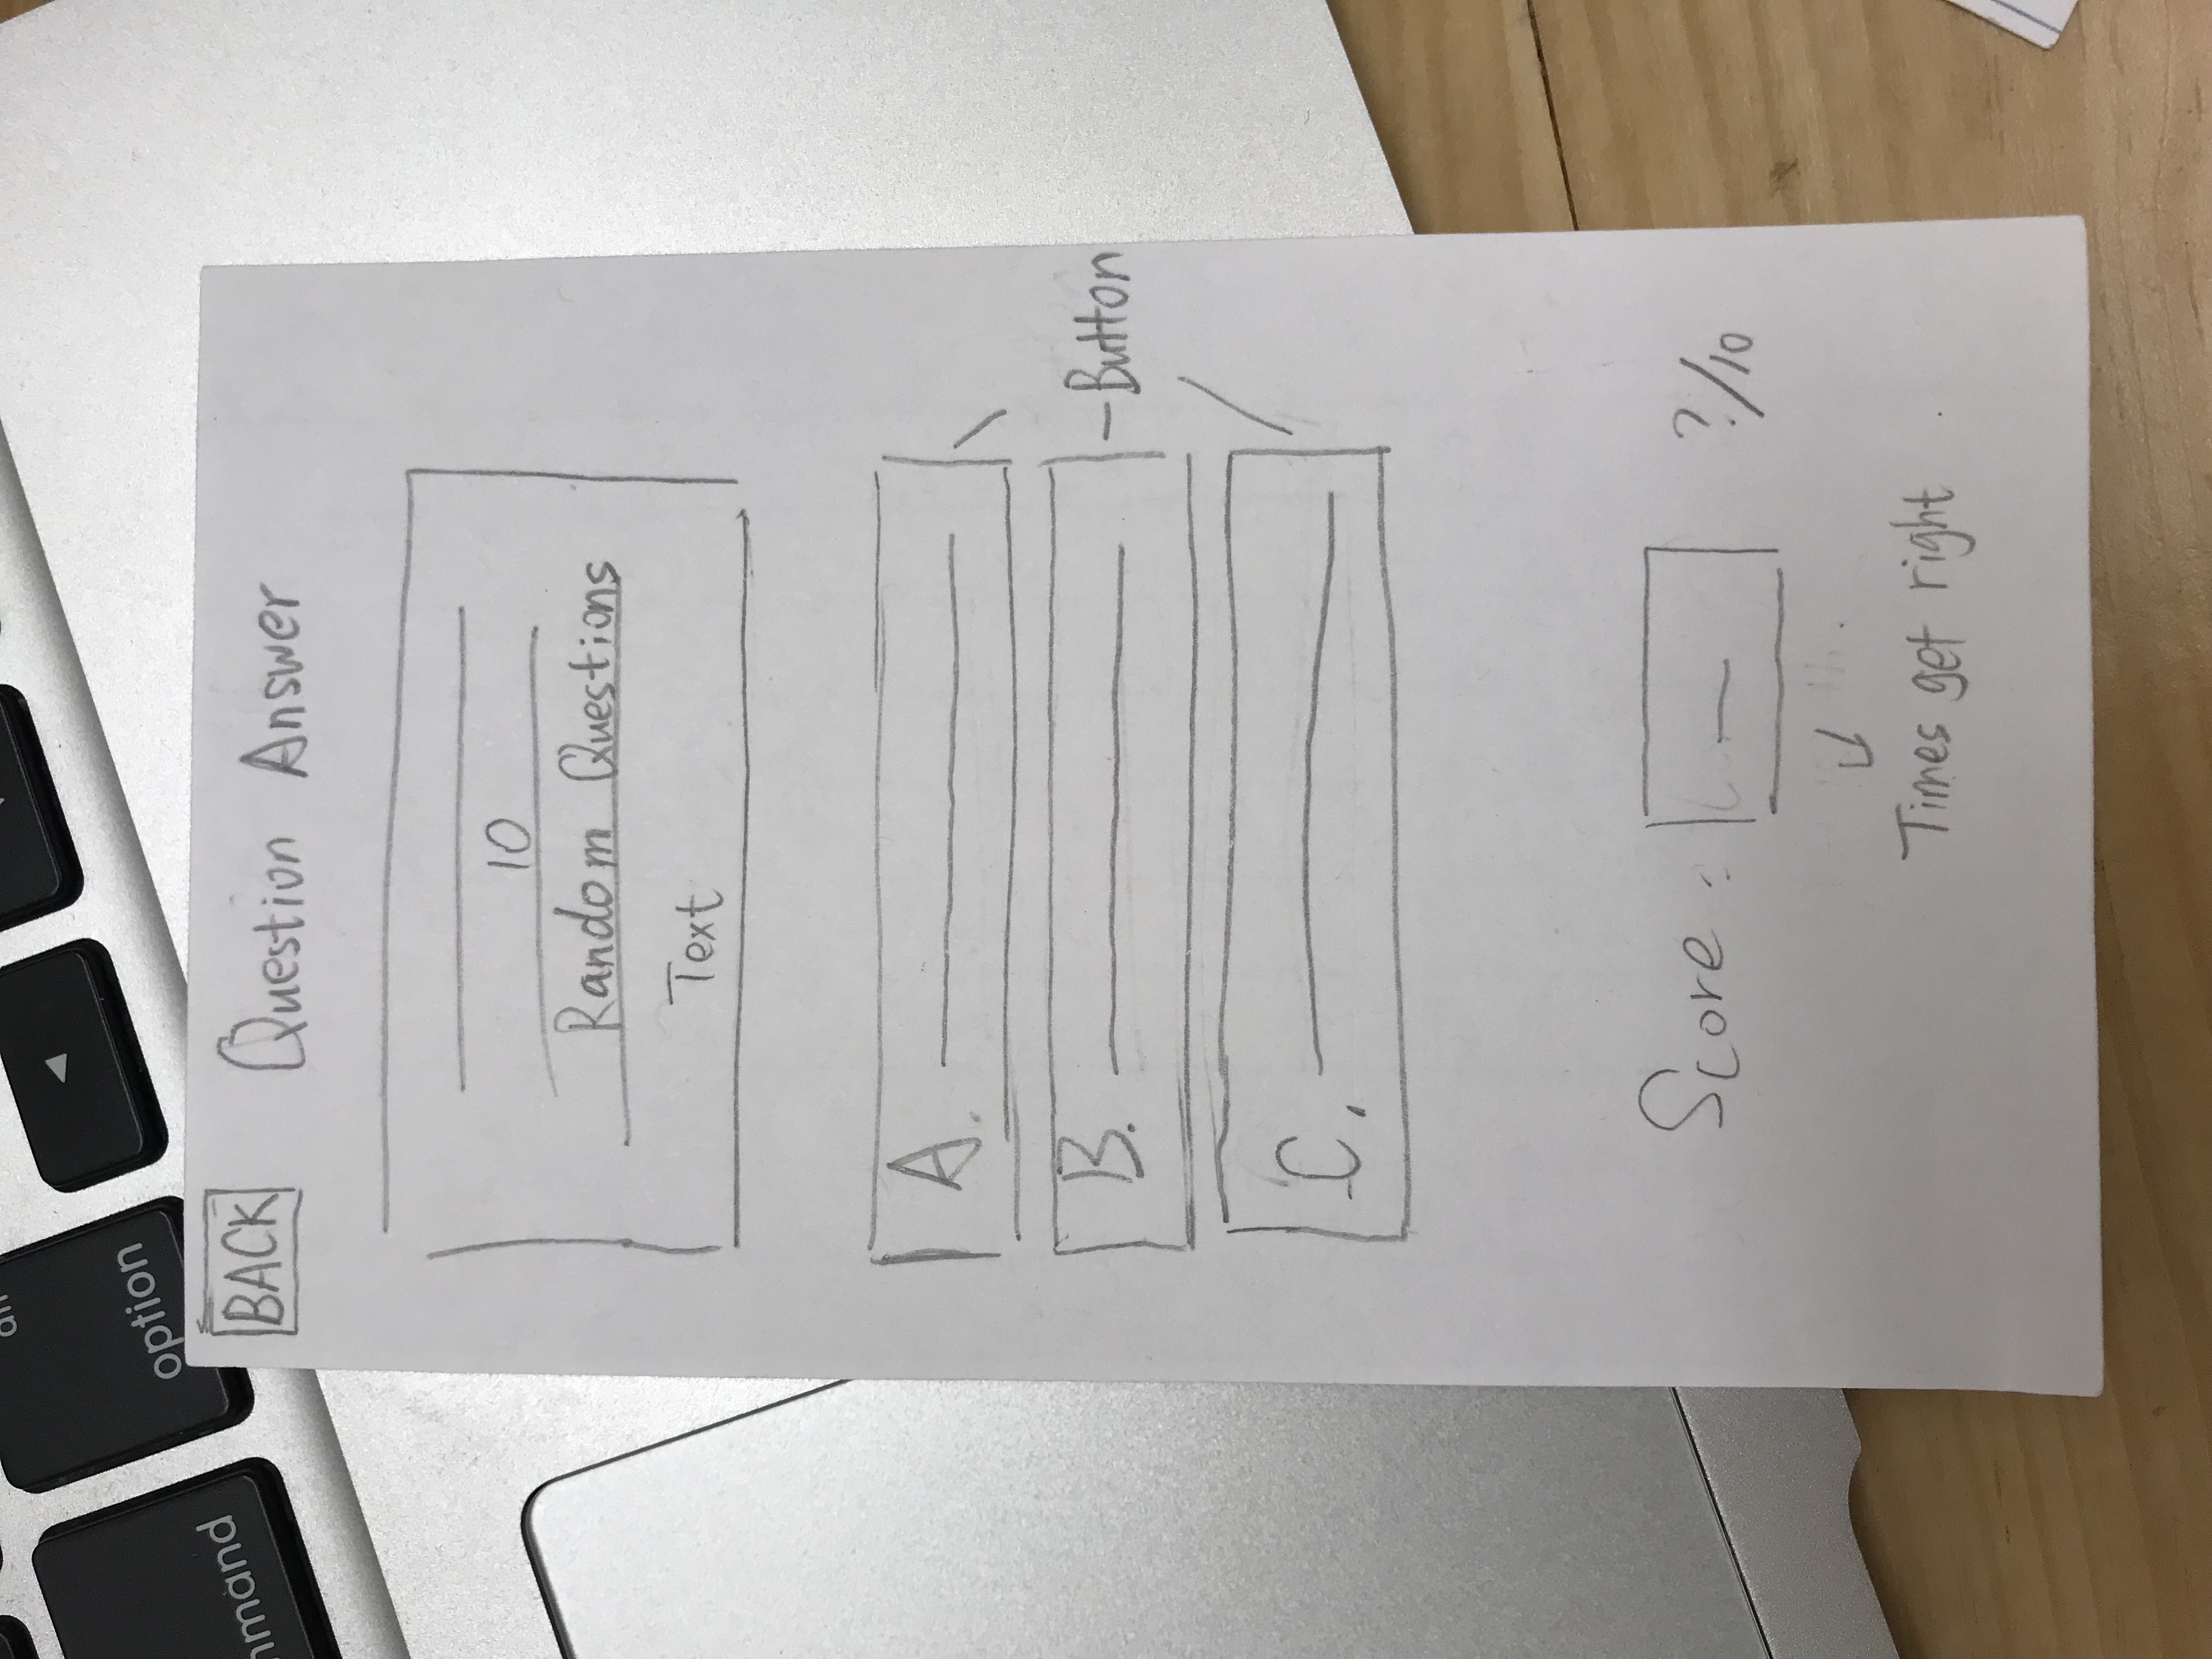 option
BACK
Question Answer
10
Random Questions
Text
A.
B.
Button
C.
Score :
?/10
Times get right